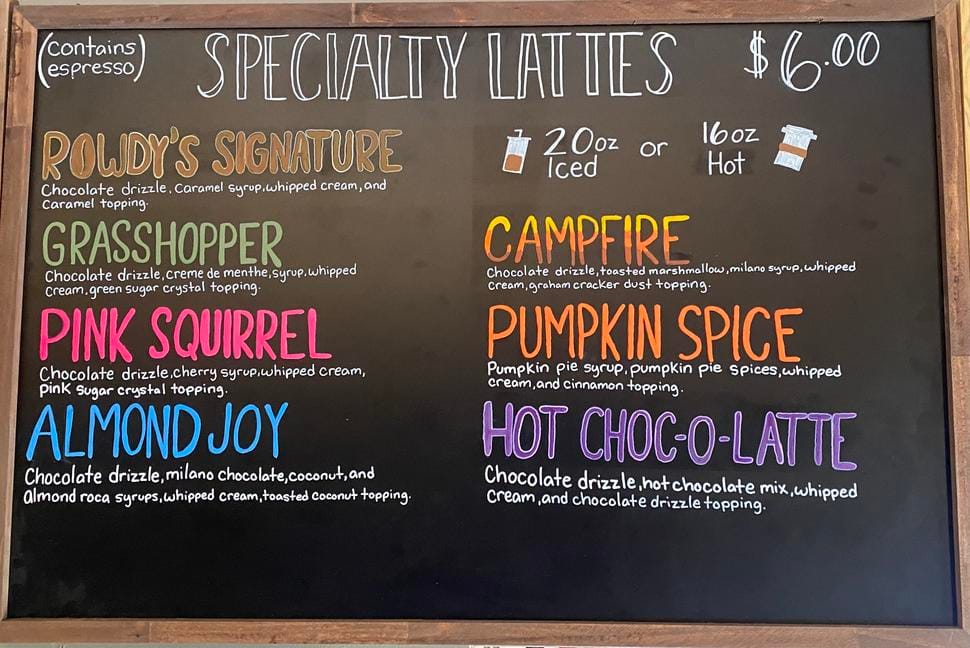 (contains
espresso)
SPECIALTY LATTES
$6.00
ROWDY'S SIGNATURE
Chocolate drizzle, Caramel syrup, whipped cream, and
Caramel topping.
20oz
Iced
or
16oz
Hot
GRASSHOPPER
Chocolate drizzle, creme de menthe, syrup, whipped
Cream, green sugar crystal topping.
CAMPFIRE
Chocolate drizzle, toasted marshmallow, milano syrup, whipped
cream, graham cracker dust topping.
PINK SQUIRREL
Chocolate drizzle, cherry syrup, whipped cream,
pink sugar crystal topping.
PUMPKIN SPICE
Pumpkin pie syrup, pumpkin pie spices, whipped
cream, and cinnamon topping.
ALMOND JOY
Chocolate drizzle, milano chocolate, coconut, and
almond roca syrups, whipped cream, toasted coconut topping.
HOT CHOC-O-LATTE
Chocolate drizzle, hot chocolate mix, whipped
Cream, and chocolate drizzle topping.